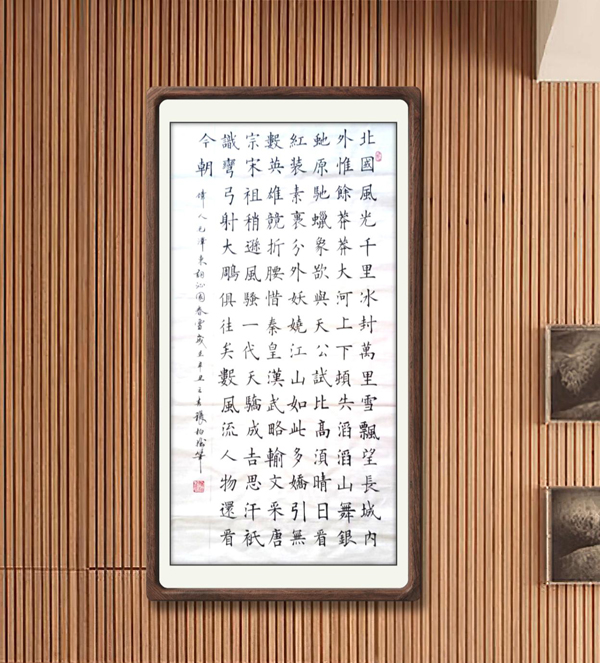 北國風光千里冰封萬里雪飄望長城内
外惟餘莽莽大河上下頓失滔滔山舞銀
虵原馳蠟象欲與天公試比高湏晴日看
紅裝素裹分外妖嬈江山如此多嬌引無
數英雄競折腰惜秦皇漢武略輸文采唐
宗宋祖稍遜風騷一代天驕成吉思汗衹
識彎弓射大鵰俱往矣數風流人物還看
今朝
偉人毛澤東詞沁園春雪歲辛丑之張柏